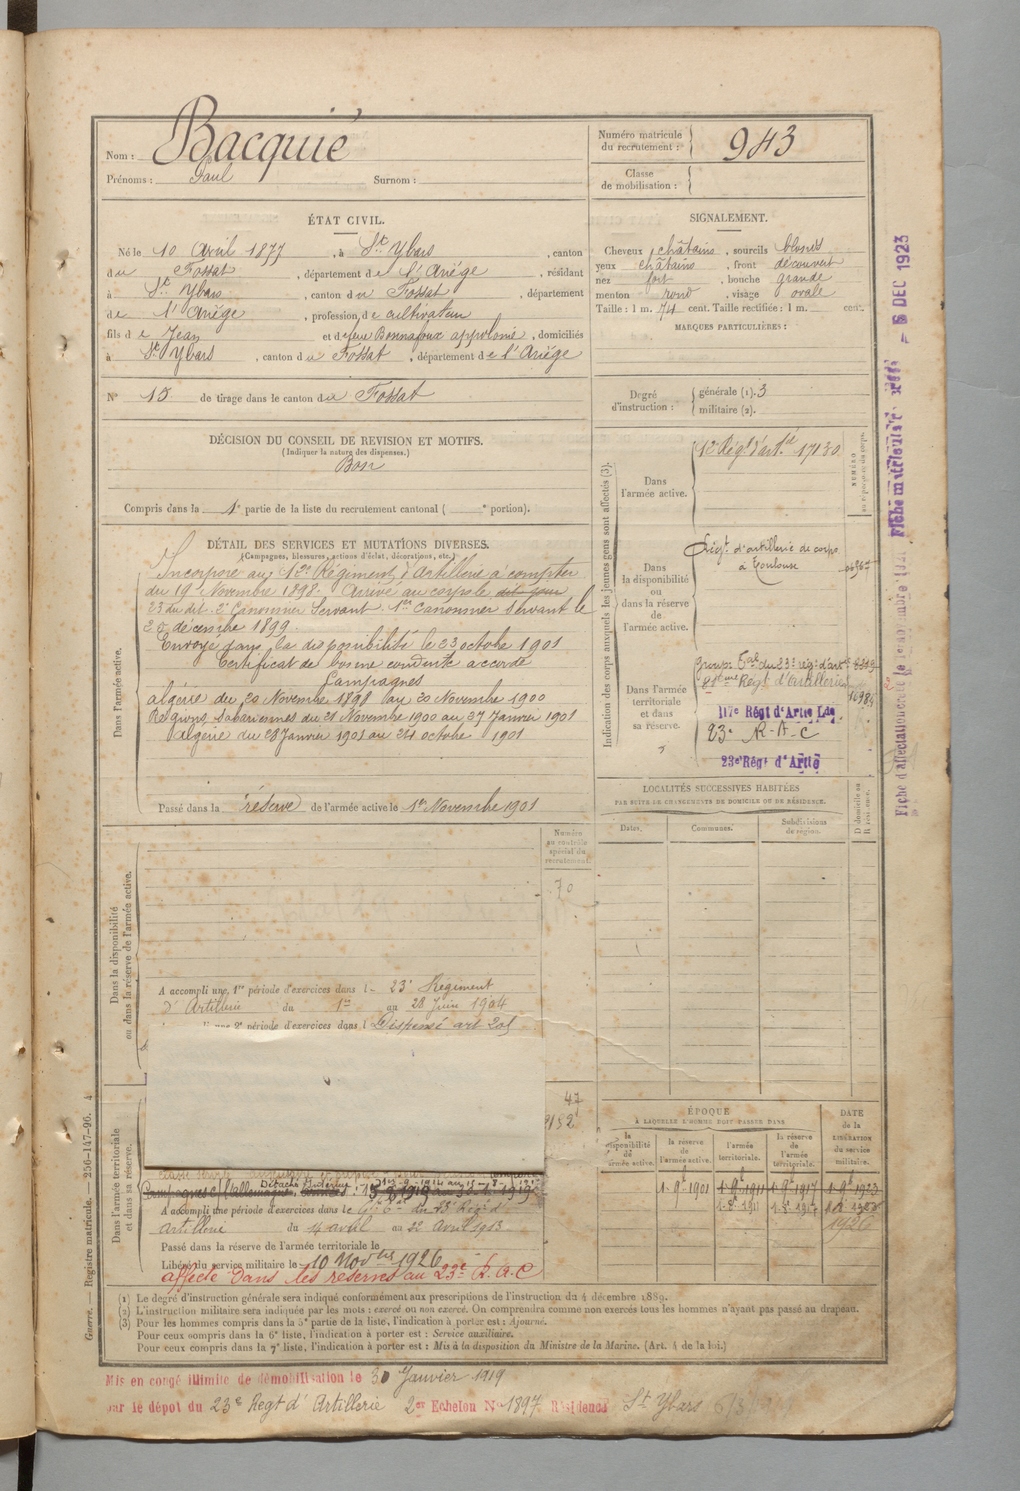 Nom : Bacquié
Prénoms : Paul Surnom :
Numéro matricule du recrutement : 943
Classe de mobilisation :
ÉTAT CIVIL.
Né le 10 Avril 1877, à St Ybars, canton
du Fossat, département de l'Ariége, résidant
à St Ybars, canton du Fossat, département
de l'Ariége, profession de cultivateur
fils de Jean et de feue Bonnafoux appolonie, domiciliés
à St Ybars, canton du Fossat, département de l'Ariége
N° 15 de tirage dans le canton du Fossat
SIGNALEMENT.
Cheveux châtains, sourcils blonds
yeux châtains, front découvert
nez fort, bouche grande
menton rond, visage ovale
Taille : 1 m. 74 cent. Taille rectifiée : 1 m. cent.
MARQUES PARTICULIÈRES :
Degré d'instruction : générale (1). 3
militaire (2).
DÉCISION DU CONSEIL DE REVISION ET MOTIFS.
(Indiquer la nature des dispenses.)
Bon
Compris dans la 1e partie de la liste du recrutement cantonal ( e portion).
DÉTAIL DES SERVICES ET MUTATIONS DIVERSES.
(Campagnes, blessures, actions d'éclat, décorations, etc.)
Dans l'armée active.
Incorporé au 12e Régiment d'Artillerie à compter
du 19 Novembre 1898. Arrivé au corps le dit jour
23 du dit. 2e Canonnier Servant. 1er Canonnier Servant le
25 décembre 1899.
Envoyé dans la disponibilité le 23 octobre 1901
Certificat de bonne conduite accordé
Campagnes
algérie du 20 Novembre 1898 au 20 Novembre 1900
Régions Sahariennes du 21 Novembre 1900 au 27 Janvier 1901
algérie du 28 Janvier 1901 au 24 octobre 1901
Passé dans la réserve de l'armée active le 1er Novembre 1901
Indication des corps auxquels les jeunes gens sont affectés (3).
NUMÉRO au répertoire du corps.
Dans l'armée active.
12e Régt d'artie 17130
Dans la disponibilité ou dans la réserve de l'armée active.
Régt d'artillerie de corps
à Toulouse
Dans l'armée territoriale et dans sa réserve.
Group. Tal du 23e régt d'artie
Régt d'Artillerie
117e Régt d'Artie Lde
23e R-A-C
23e Régt d'Artie
LOCALITÉS SUCCESSIVES HABITÉES
PAR SUITE DE CHANGEMENTS DE DOMICILE OU DE RÉSIDENCE.
Dates. Communes. Subdivisions de région. D domicile ou R résidence.
Numéro au contrôle spécial du recrutement.
70
Dans la disponibilité ou dans la réserve de l'armée active.
A accompli une 1re période d'exercices dans l 23e Régiment
d'Artillerie du 1er au 28 Juin 1904
une 2e période d'exercices dans l Dispensé art 201
47
Dans l'armée territoriale et dans sa réserve.
Campagne c/ l'allemagne
Détaché
A accompli une période d'exercices dans le Gpe du 23e Régt d'
artillerie du 14 avril au 22 avril 1913
Passé dans la réserve de l'armée territoriale le
Libéré du service militaire le 10 Novbre 1926
affecté dans les réserves au 23e R.A.C
ÉPOQUE
À LAQUELLE L'HOMME DOIT PASSER DANS
la disponibilité de l'armée active. la réserve de l'armée active. l'armée territoriale. la réserve de l'armée territoriale.
DATE de la LIBÉRATION du service militaire.
1-9bre 1901 1-9bre 1911 1-9bre 1917 1-9bre 1923
1926
(1) Le degré d'instruction générale sera indiqué conformément aux prescriptions de l'instruction du 4 décembre 1889.
(2) L'instruction militaire sera indiquée par les mots : exercé ou non exercé. On comprendra comme non exercés tous les hommes n'ayant pas passé au drapeau.
(3) Pour les hommes compris dans la 5e partie de la liste, l'indication à porter est : Ajourné.
Pour ceux compris dans la 6e liste, l'indication à porter est : Service auxiliaire.
Pour ceux compris dans la 7e liste, l'indication à porter est : Mis à la disposition du Ministre de la Marine. (Art. 4 de la loi.)
Mis en congé illimité de démobilisation le 30 Janvier 1919
par le dépôt du 23e Regt d'Artillerie 2er Echelon No 1897 Résidence St Ybars
Guerre. — Registre matricule. — 256-147-96. 4
DEC 1923